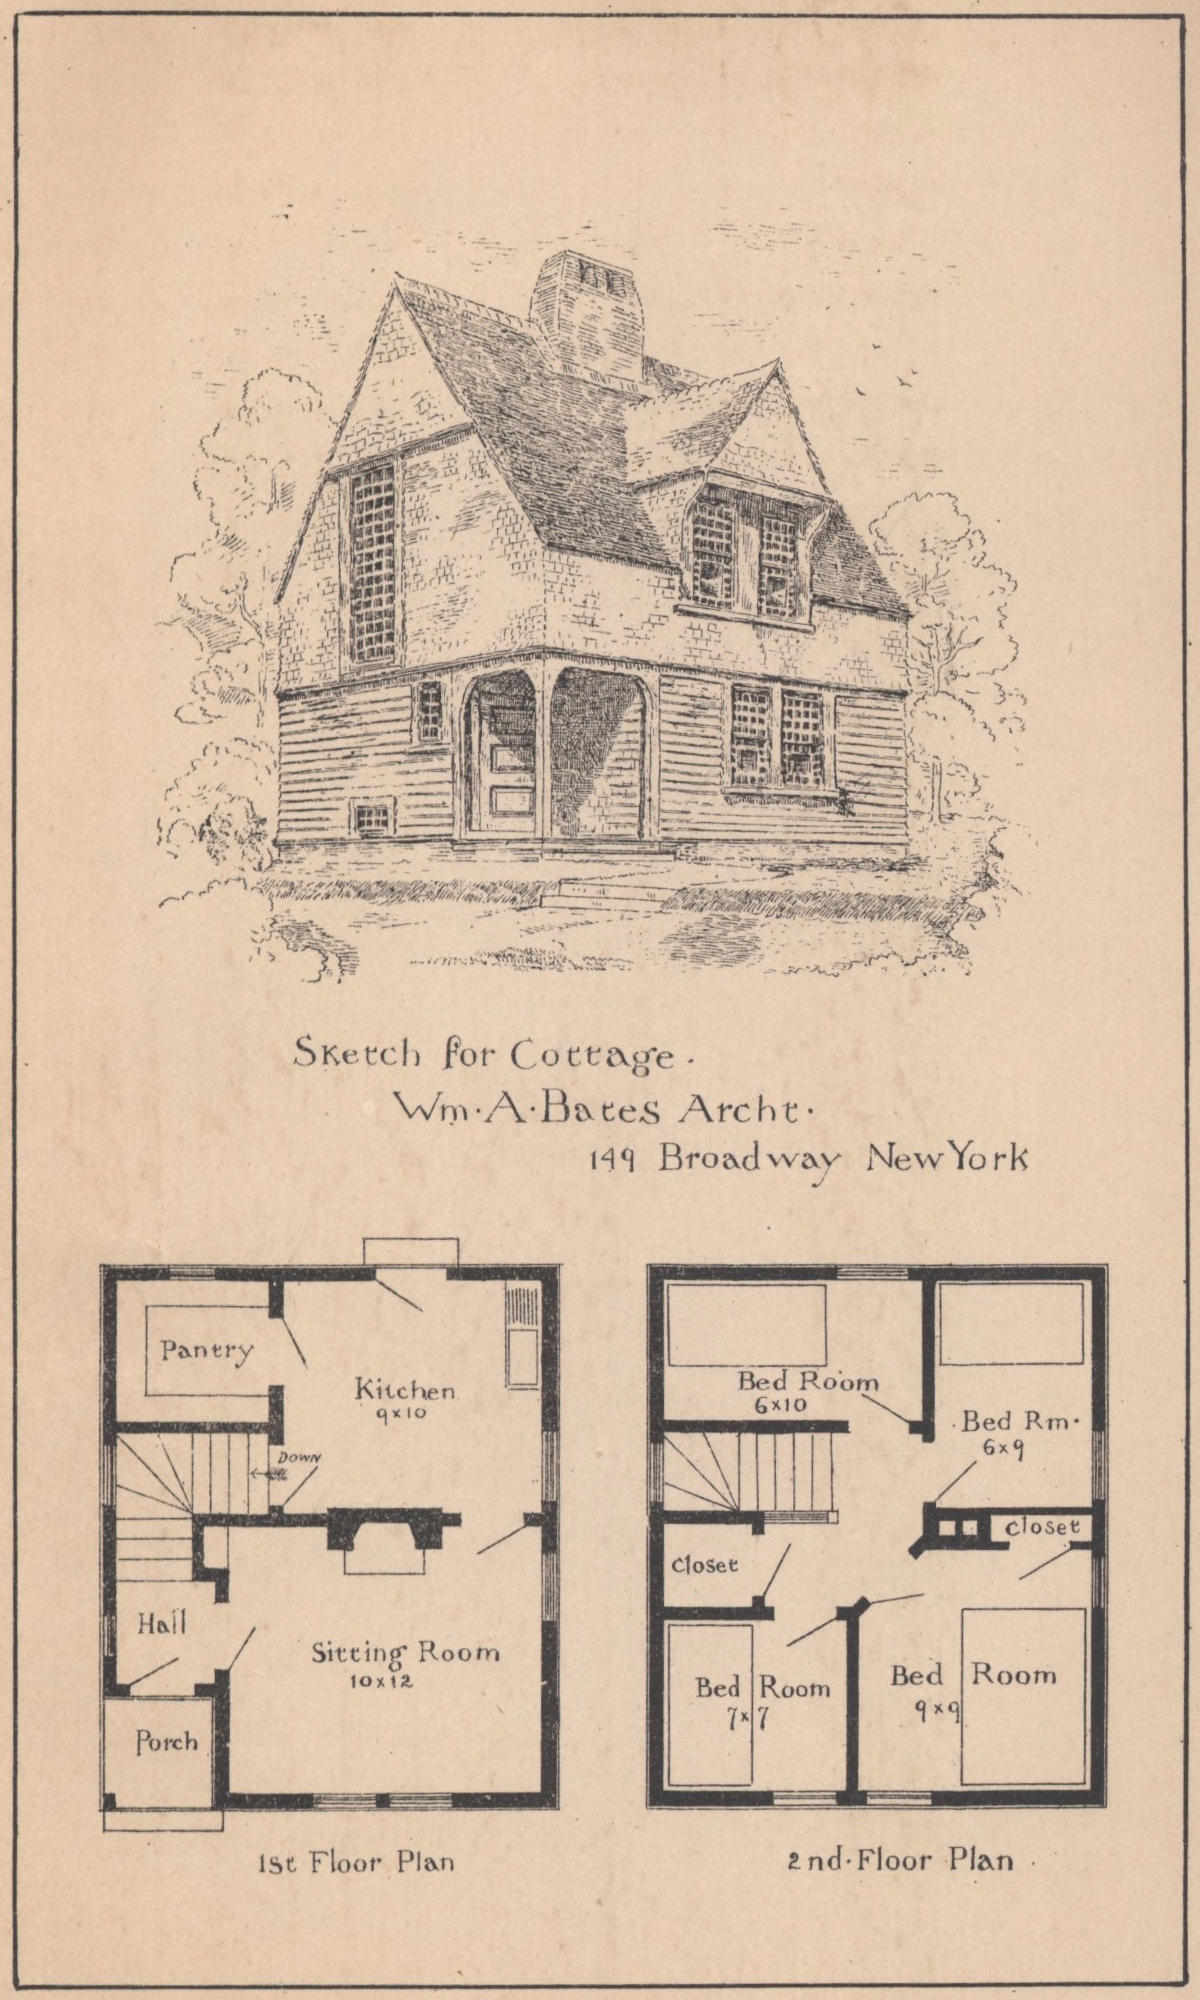 Sketch for Cottage.
Wm. A. Bates Archt.
149 Broadway New York
Pantry
Kitchen
9x10
DOWN
Hall
Sitting Room
10x12
Porch
1st Floor Plan
Bed Room
6x10
Bed Rm.
6x9
closet
closet
Bed Room
7x7
Bed Room
9x9
2nd. Floor Plan.